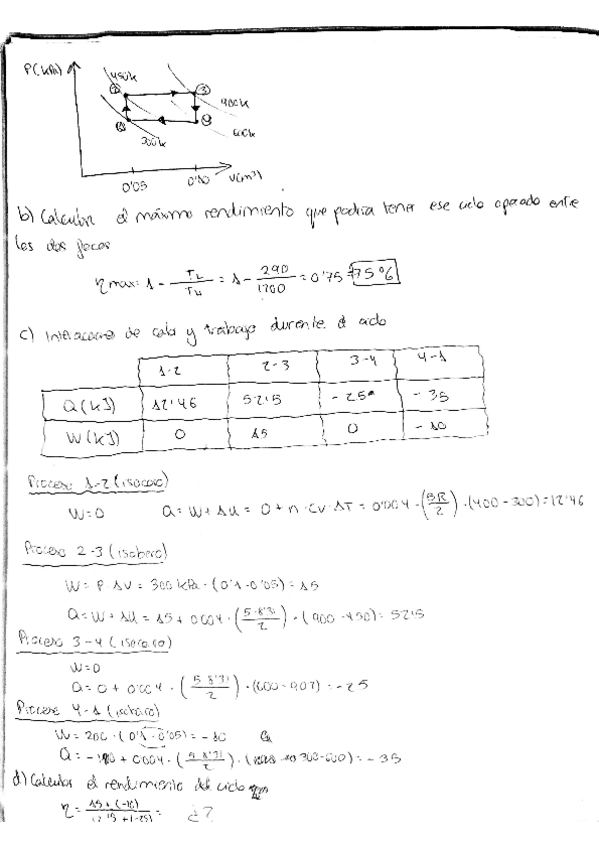 P(kPa)
450k
② ③
900k
① ④
600k
300k
0'05 0'10 V(m³)
b) Calcular el máximo rendimiento que podría tener ese ciclo operado entre
los dos focos
η max = 1 - TL/TH = 1 - 290/1200 = 0'75 = 75%
c) Interacciones de calor y trabajo durante el ciclo
1-2 2-3 3-4 4-1
Q(kJ) 12'46 52'5 -25 -35
W(kJ) 0 15 0 -10
Proceso 1-2 (isocoro)
W=0 Q = W + ΔU = 0 + n · cv · ΔT = 0'004 · (5R/2) · (400 - 300) = 12'46
Proceso 2-3 (isobaro)
W = P · ΔV = 300 kPa · (0'1 - 0'05) = 15
Q = W + ΔU = 15 + 0'004 · (5·8'31/2) · (900 - 450) = 52'5
Proceso 3-4 (isocoro)
W=0
Q = 0 + 0'004 · (5·8'31/2) · (600 - 907) = -25
Proceso 4-1 (isobaro)
W = 200 · (0'1 - 0'05) = -10
Q = + 0'004 · (5·8'31/2) · 300-600) = -35
d) Calcular el rendimiento del ciclo
η = 15 + (-10) / =